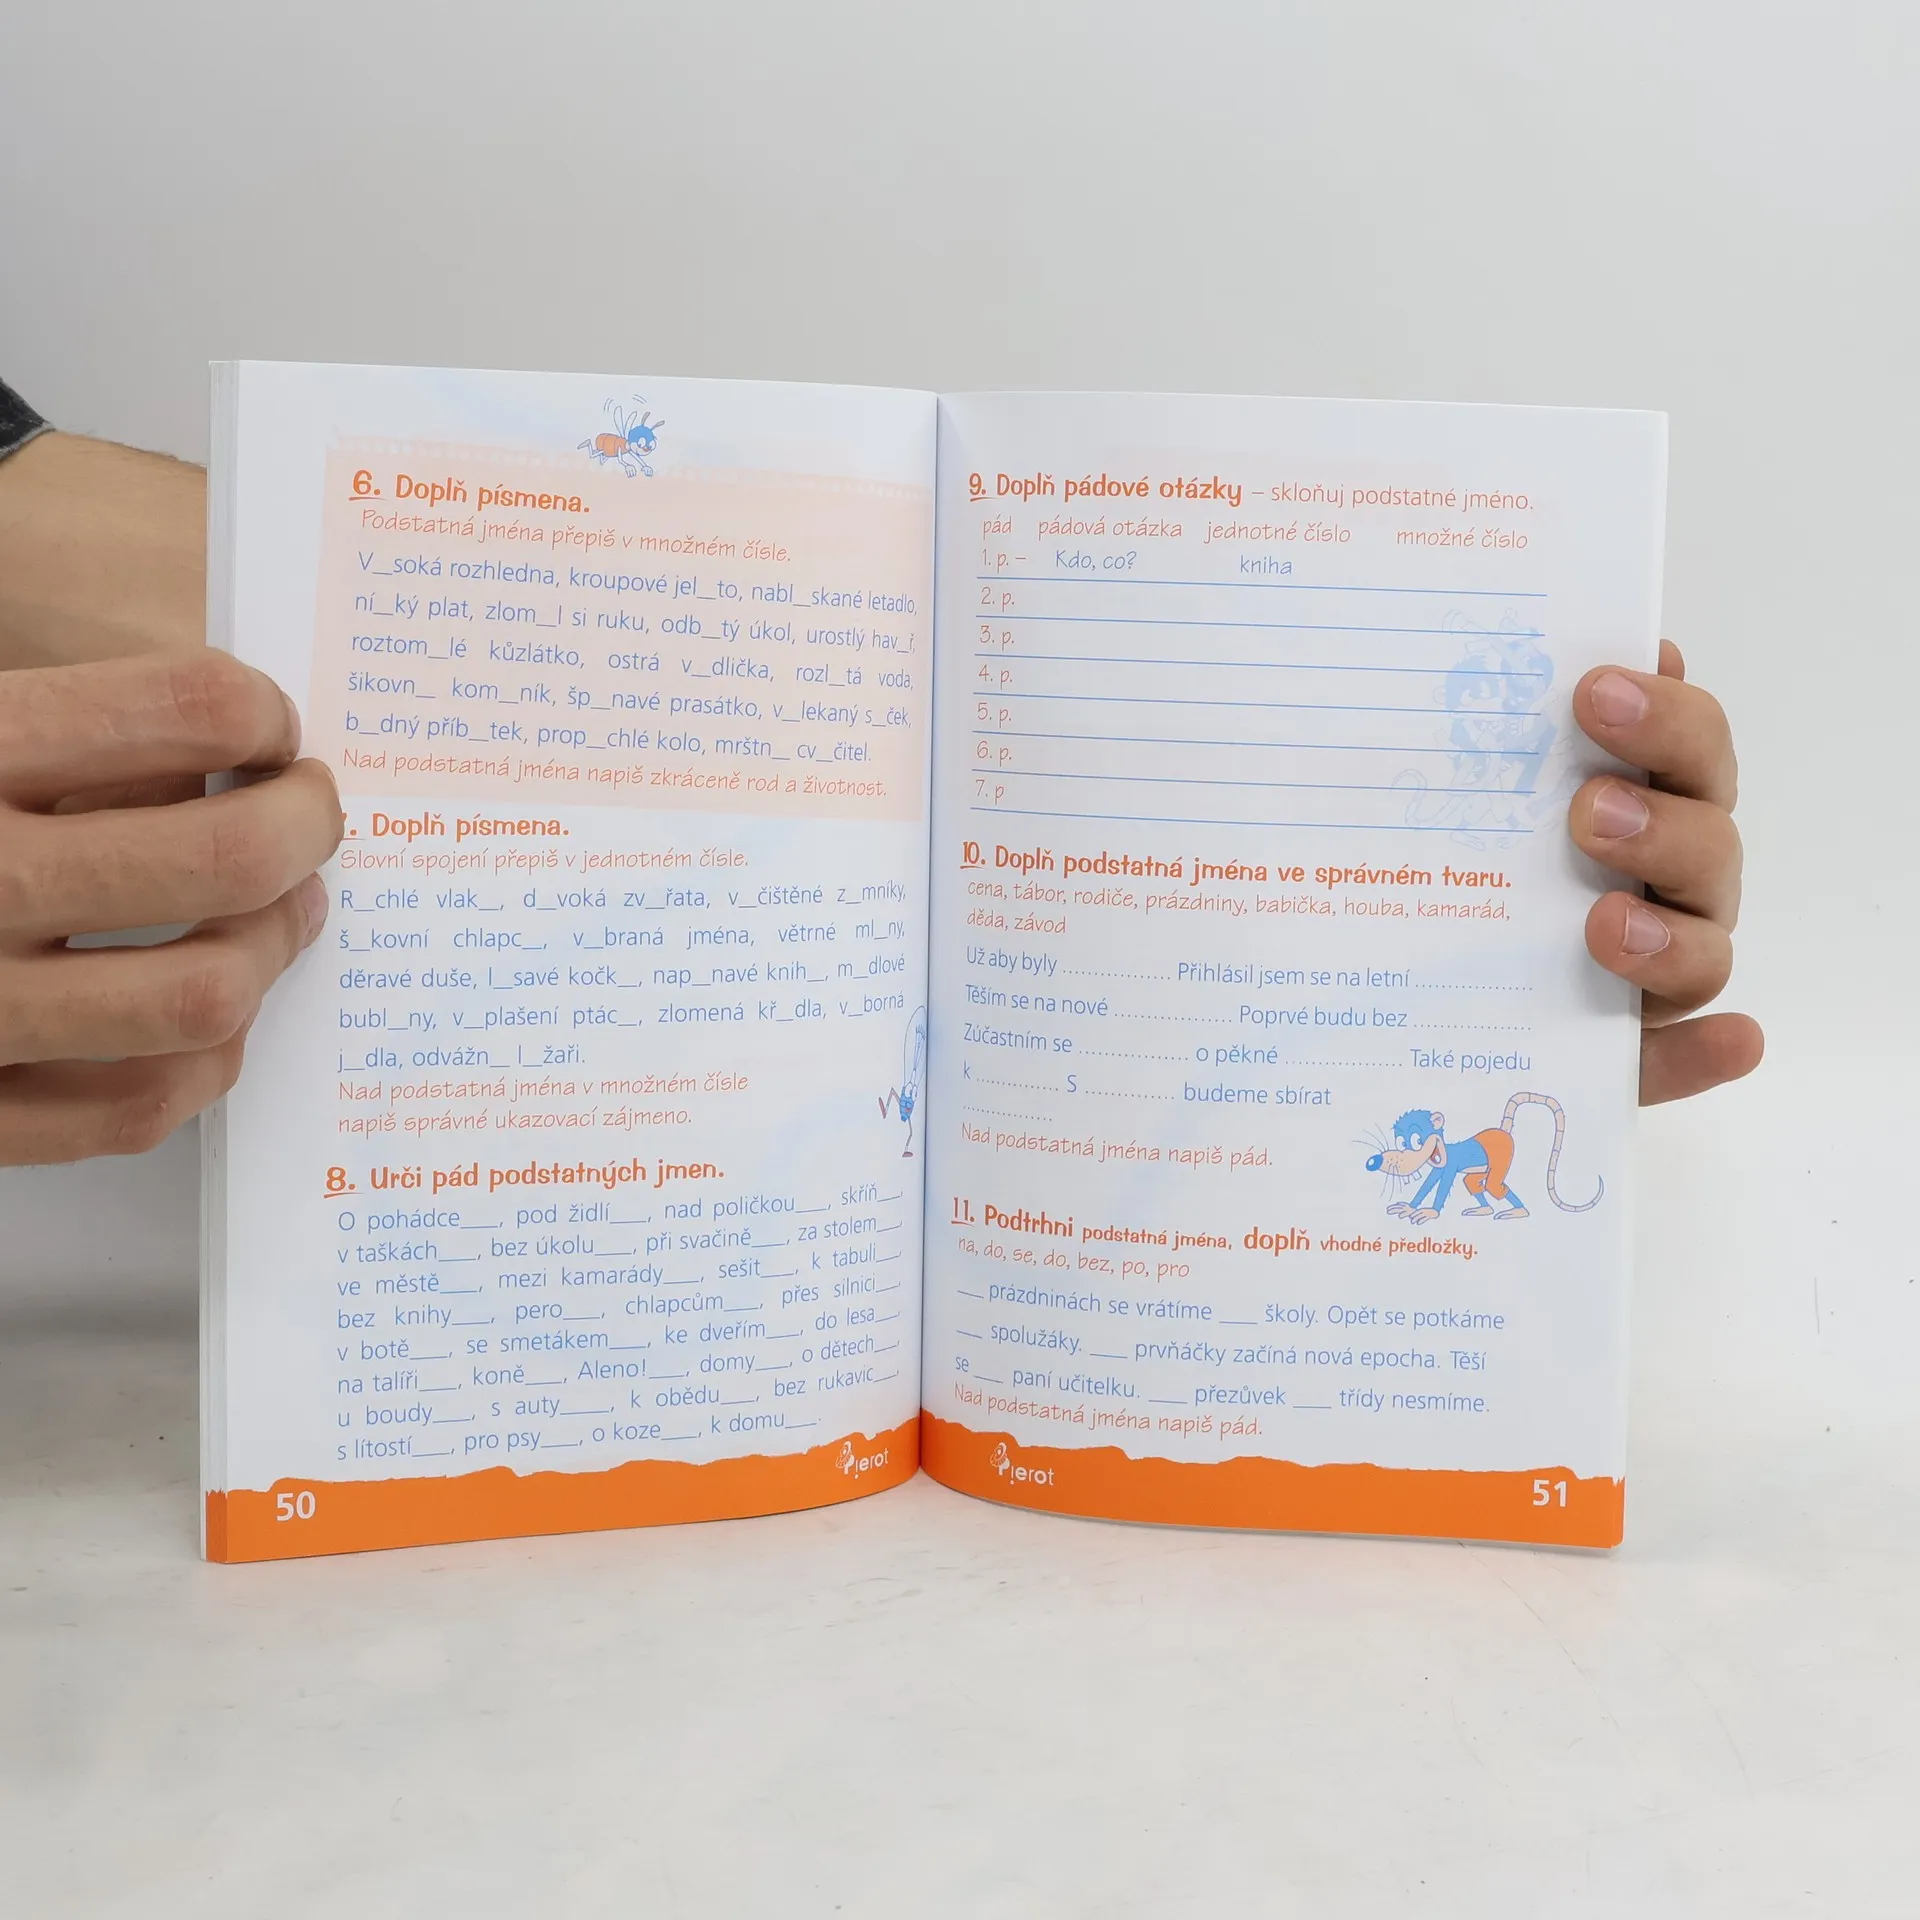 6. Doplň písmena.
Podstatná jména přepiš v množném čísle.
V__soká rozhledna, kroupové jel__to, nabl__skané letadlo,
ní__ký plat, zlom__l si ruku, odb__tý úkol, urostlý hav__ř,
roztom__lé kůzlátko, ostrá v__dlička, rozl__tá voda,
šikovn__ kom__ník, šp__navé prasátko, v__lekaný s__ček,
b__dný příb__tek, prop__chlé kolo, mrštn__ cv__čitel.
Nad podstatná jména napiš zkráceně rod a životnost.
. Doplň písmena.
Slovní spojení přepiš v jednotném čísle.
R__chlé vlak__, d__voká zv__řata, v__čištěné z__mníky,
š__kovní chlapc__, v__braná jména, větrné ml__ny,
děravé duše, l__savé kočk__, nap__navé knih__, m__dlové
bubl__ny, v__plašení ptác__, zlomená kř__dla, v__borná
j__dla, odvážn__ l__žaři.
Nad podstatná jména v množném čísle
napiš správné ukazovací zájmeno.
8. Urči pád podstatných jmen.
O pohádce___, pod židlí___, nad poličkou___, skříň___,
v taškách___, bez úkolu___, při svačině___, za stolem___,
ve městě___, mezi kamarády___, sešit___, k tabuli___,
bez knihy___, pero___, chlapcům___, přes silnici___,
v botě___, se smetákem___, ke dveřím___, do lesa___,
na talíři___, koně___, Aleno!___, domy___, o dětech___,
u boudy___, s auty____, k obědu___, bez rukavic___,
s lítostí___, pro psy___, o koze___, k domu___.
Pierot
50
9. Doplň pádové otázky – skloňuj podstatné jméno.
pád pádová otázka jednotné číslo množné číslo
1. p. – Kdo, co? kniha
2. p.
3. p.
4. p.
5. p.
6. p.
7. p
10. Doplň podstatná jména ve správném tvaru.
cena, tábor, rodiče, prázdniny, babička, houba, kamarád,
děda, závod
Už aby byly ................. Přihlásil jsem se na letní ..................
Těším se na nové .................. Poprvé budu bez ..................
Zúčastním se ................. o pěkné .................. Také pojedu
k ............. S .............. budeme sbírat
..............
Nad podstatná jména napiš pád.
11. Podtrhni podstatná jména, doplň vhodné předložky.
na, do, se, do, bez, po, pro
___ prázdninách se vrátíme ____ školy. Opět se potkáme
___ spolužáky. ____ prvňáčky začíná nová epocha. Těší
se ___ paní učitelku. ____ přezůvek ____ třídy nesmíme.
Nad podstatná jména napiš pád.
Pierot
51